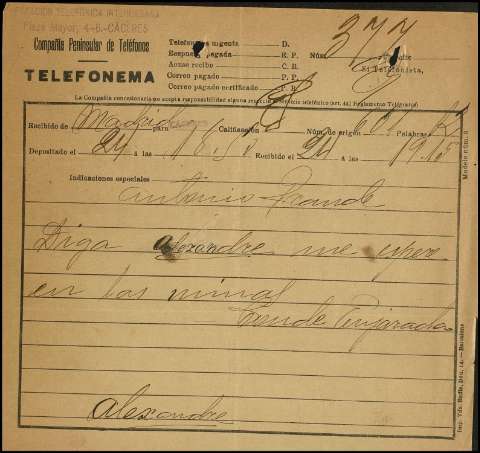 ESTACIÓN TELEFÓNICA INTERURBANA
Plaza Mayor, 4-6.-CÁCERES
Compañía Peninsular de Teléfonos
TELEFONEMA
Telefonema urgente D.
Respuesta pagada R. P.
Acuse recibo C. R.
Correo pagado P. P.
Correo pagado certificado P. R.
Núm. 377
El Telefonista,
La Compañía concesionaria no acepta responsabilidad alguna respecto al servicio telefónico (art. del Reglamento Telégrafos)
Recibido de Madrid para Calificación Núm. de origen Palabras
Depositado el 24 á las Recibido el 24 á las 19.15
Indicaciones especiales
Antonio Grande
Diga alexandre me espere
en las minas
Conde Pinjarada
alexandre
Modelo núm. 8